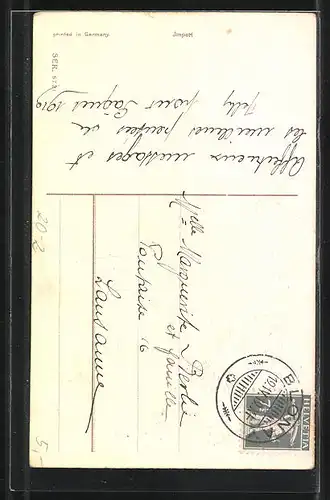 printed in Germany
Import
SER. 673
Affectueux messages et
les meilleures pensées de
pour Pâques 1919
Melle Marguerite
et famille
Pontaise 16
Lausanne
HELVETIA
20-2
5,-